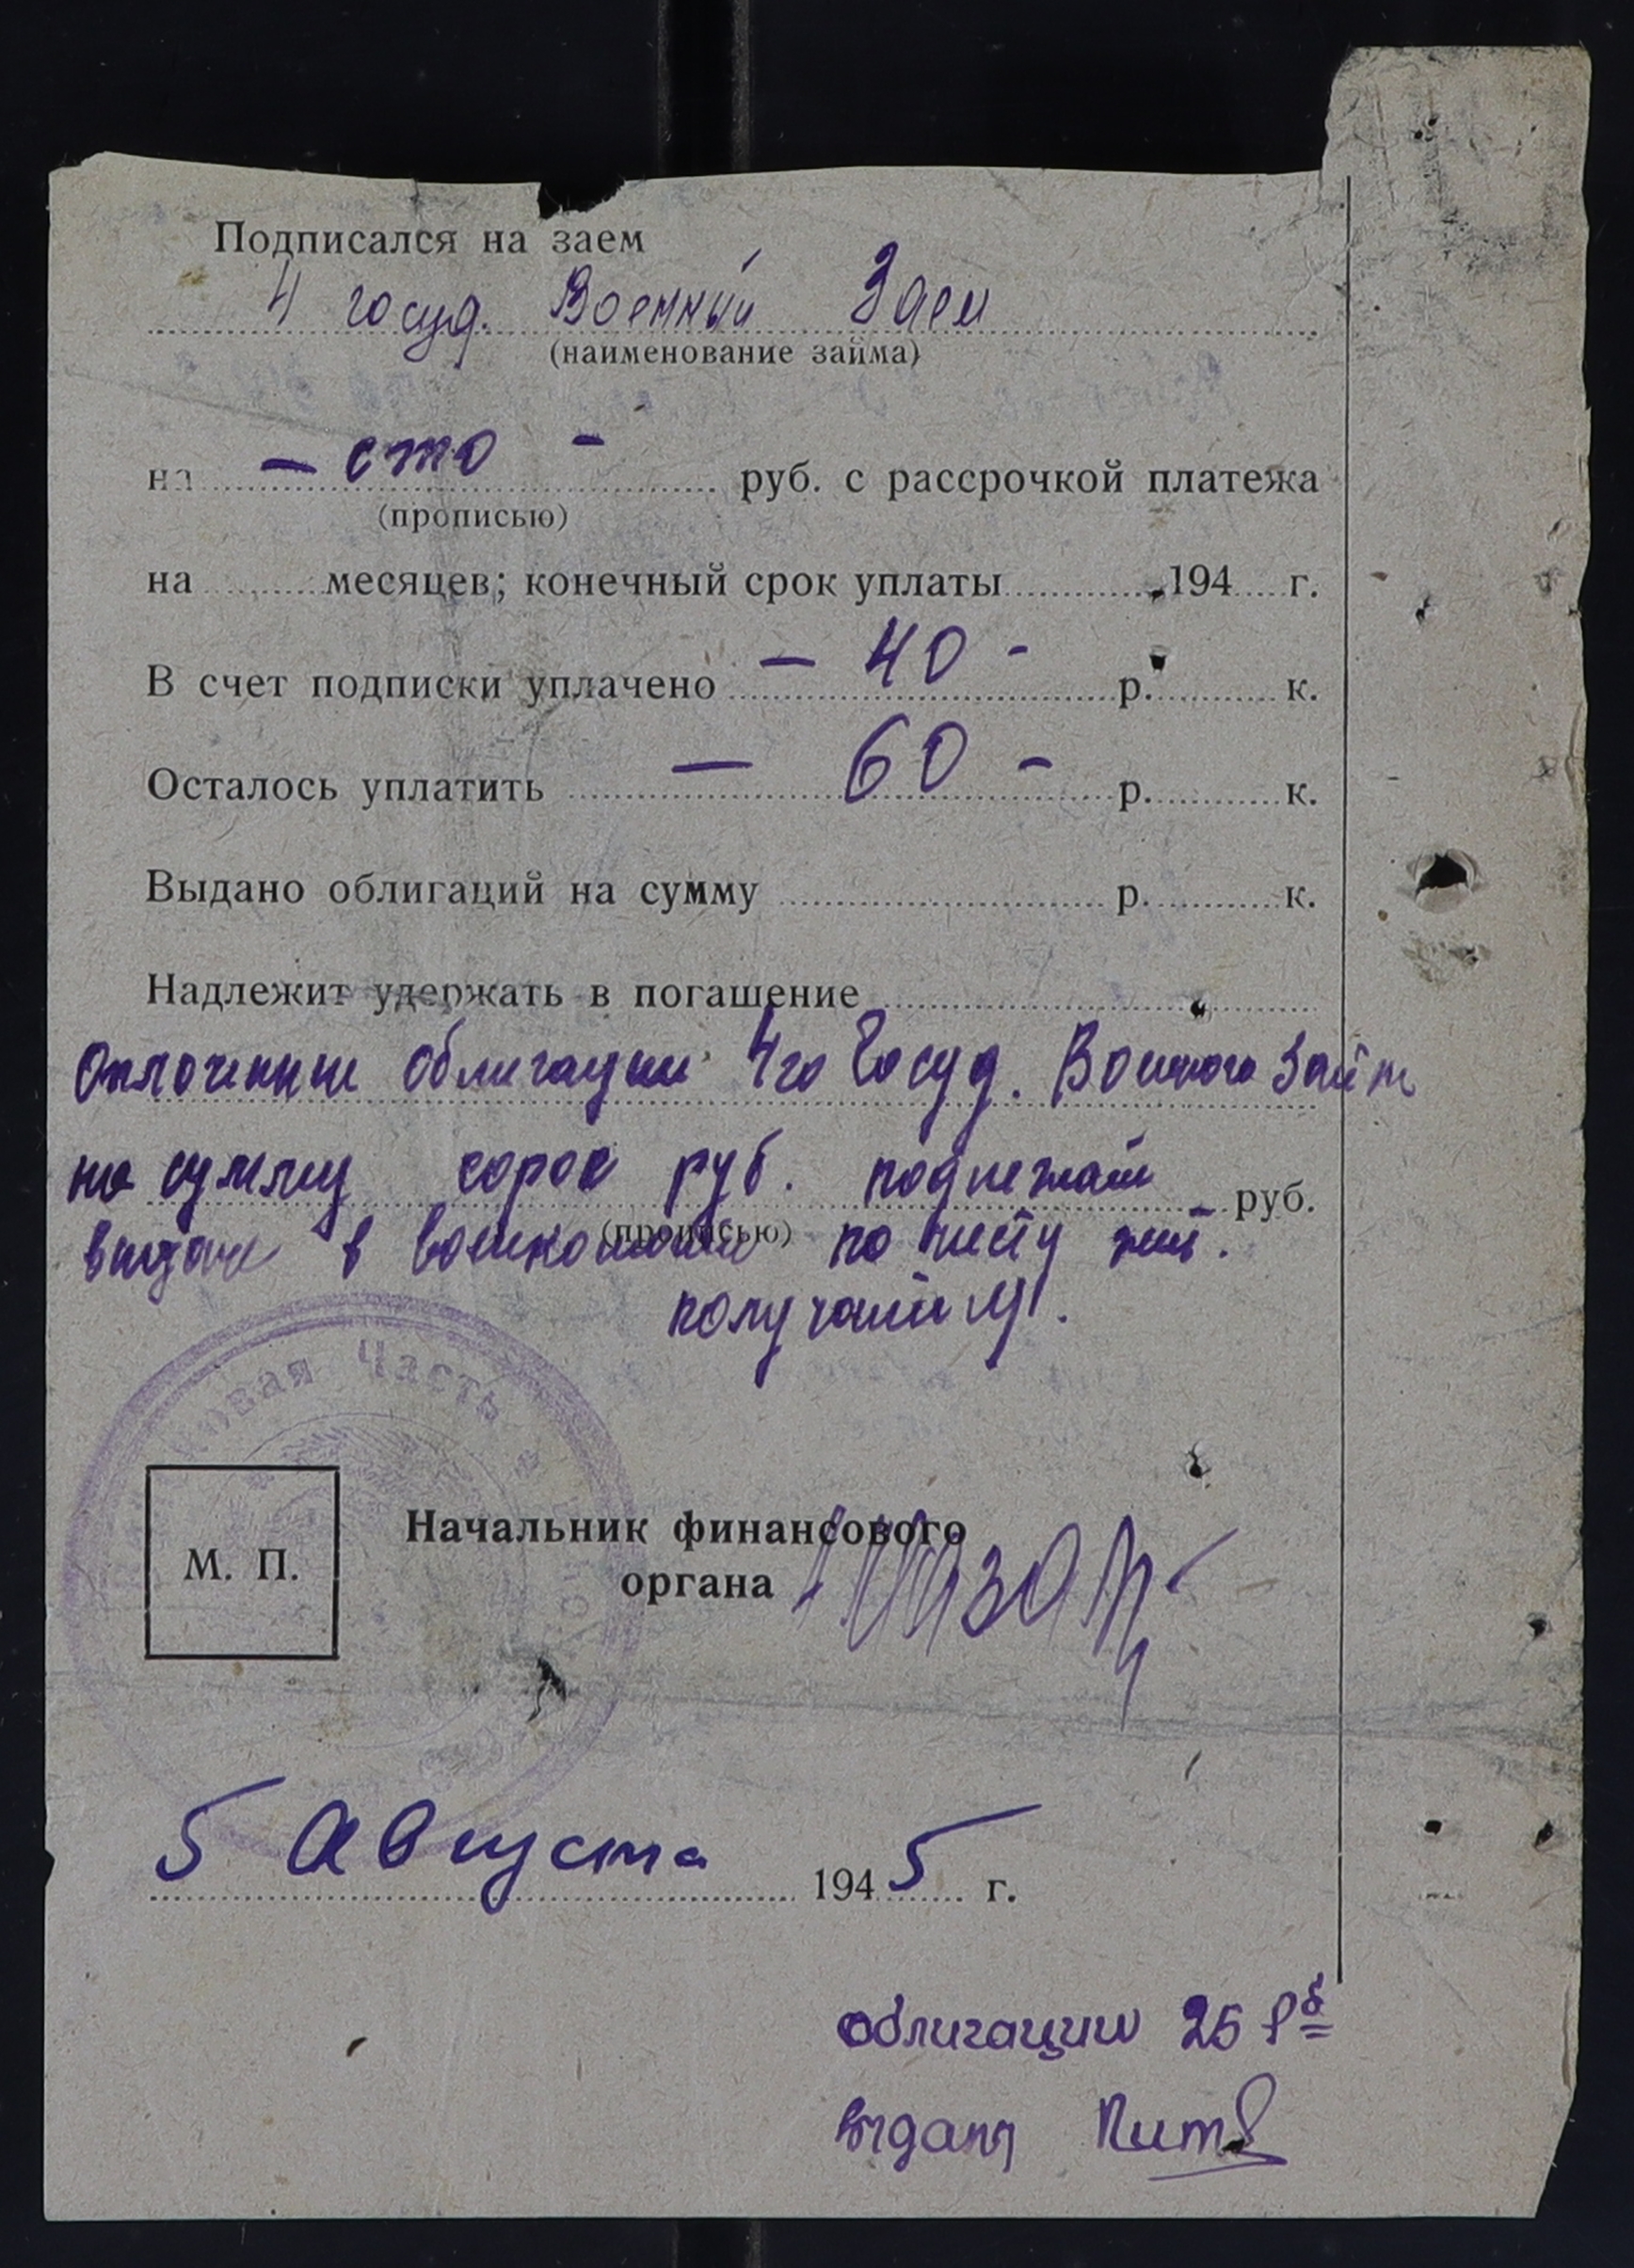 Подписался на заем
4 госуд. Военный Заем
(наименование займа)
на — сто — руб. с рассрочкой платежа
(прописью)
на месяцев; конечный срок уплаты 194 г.
В счет подписки уплачено — 40 — р. к.
Осталось уплатить — 60 — р. к.
Выдано облигаций на сумму р. к.
Надлежит удержать в погашение
Оплоченные облигации 4го Госуд. Военного Займа
на сумму сорок руб. подлежат руб.
(прописью)
выдаче в военкомате по месту жит.
получать
овая Часть
М. П.
Начальник финансового
органа
5 Августа 1945 г.
облигации 25 рб
выданы